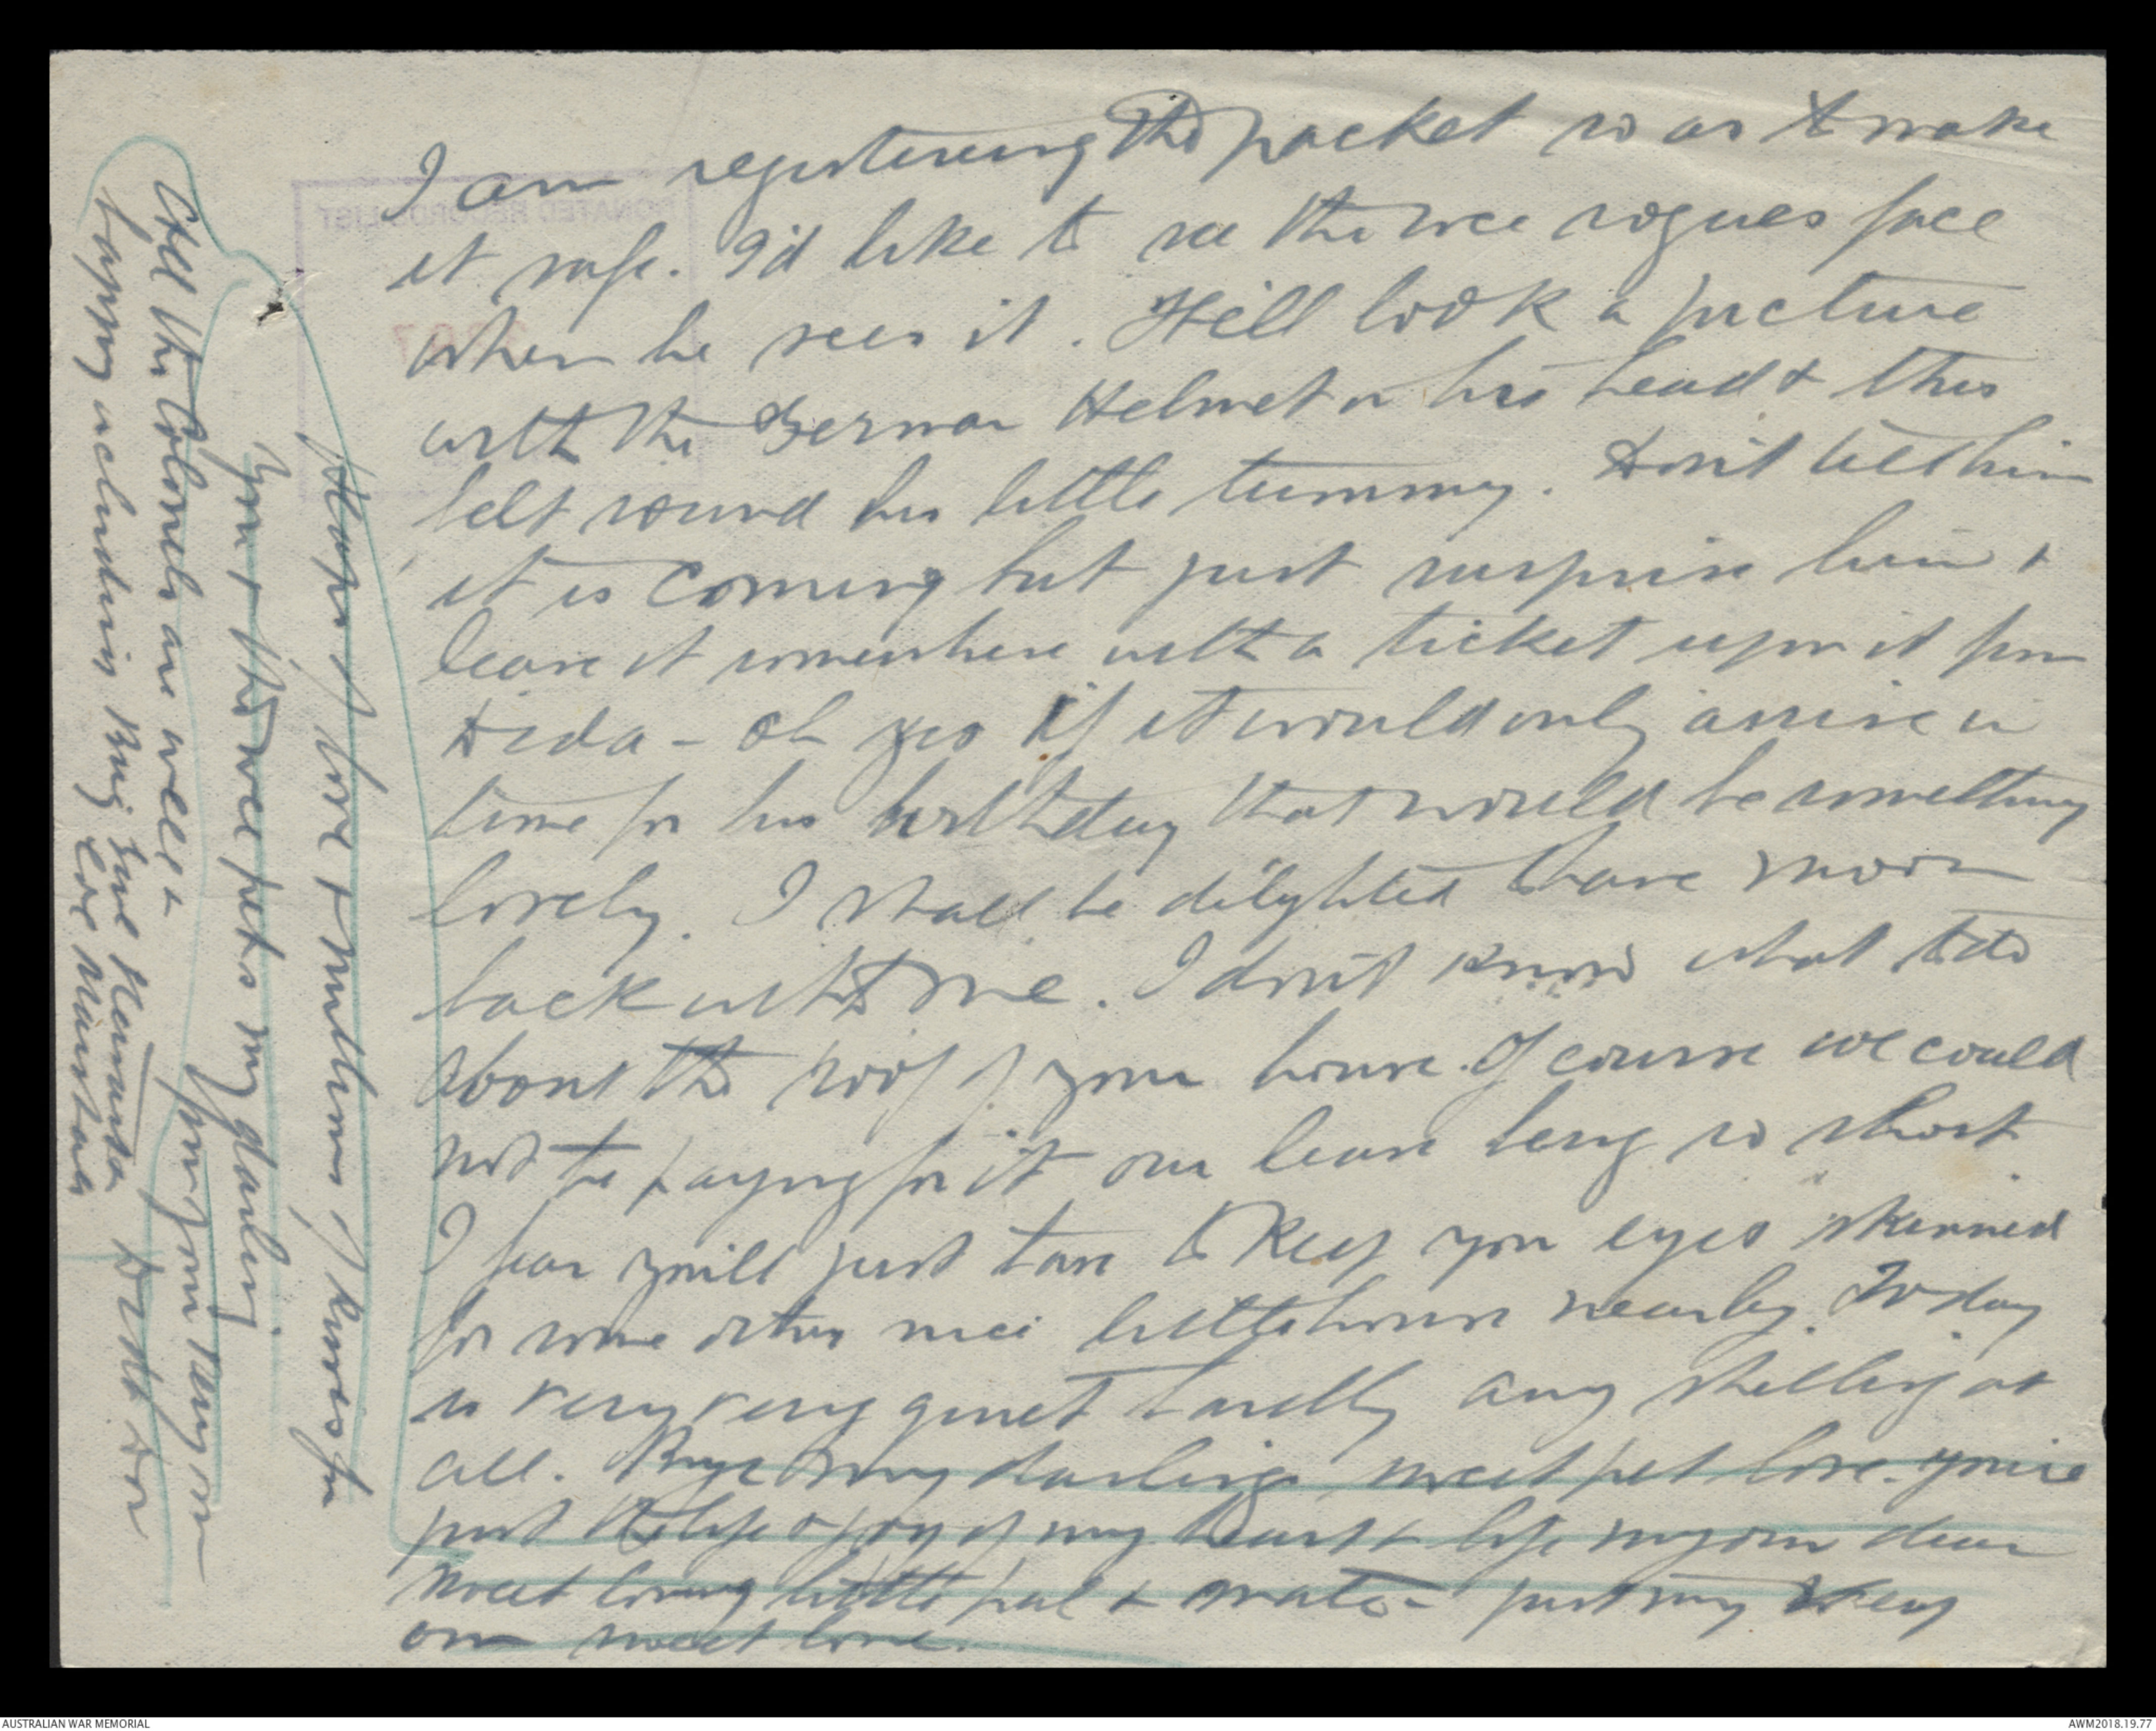 I am registering this packet so as to make
it safe. I'd like to see the wee rogues face
when he sees it. He'll look a picture
with the German Helmet on his head & this
belt round his little tummy. Don't tell him
it is coming but just surprise him &
leave it somewhere with a ticket upon it from
Dida - oh yes if it would only arrive in
time for his birthday that would be something
lovely. I shall be delighted to have
back with me. I don't know what to do
about the roof of your house. Of course we could
not be paying for it our lease being so short
I fear you'll just have to keep you eyes skinned
for some other nice little house nearby. Today
is very very quiet hardly any shelling at
all. Bye Bye my darling sweet pet love. you're
just the life & joy of my heart & life my own dear
sweet loving little pal & mate - just my very
own sweet love.
Heaps of love & millions of kisses for
you & the wee pets my darling
from your very own
Dida Don
All the Colonels are well &
happy including
love
DONATED RECORDS LIST
AUSTRALIAN WAR MEMORIAL
AWM2018.19.77